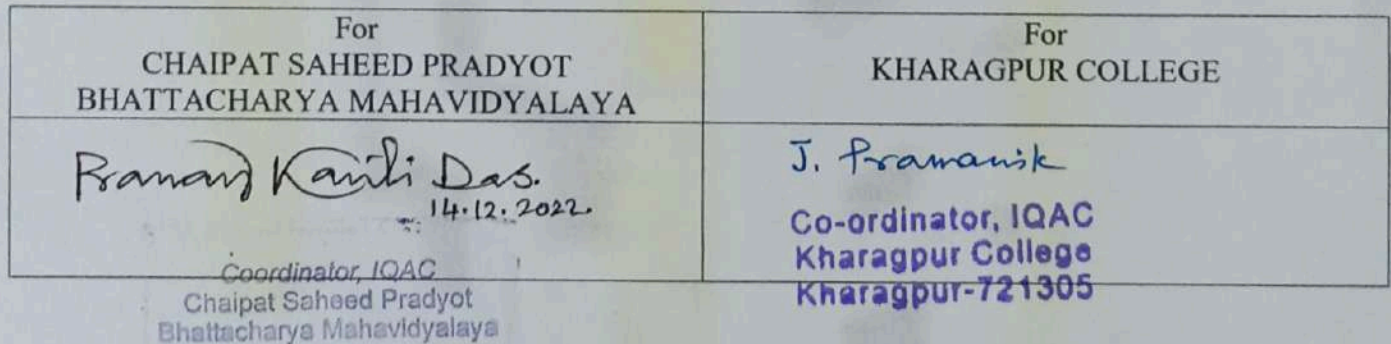 For
CHAIPAT SAHEED PRADYOT
BHATTACHARYA MAHAVIDYALAYA
For
KHARAGPUR COLLEGE
Kanti Das.
14.12.2022.
Coordinator, IQAC
Chaipat Saheed Pradyot
Bhattacharya Mahavidyalaya
J. Pramanik
Co-ordinator, IQAC
Kharagpur College
Kharagpur-721305